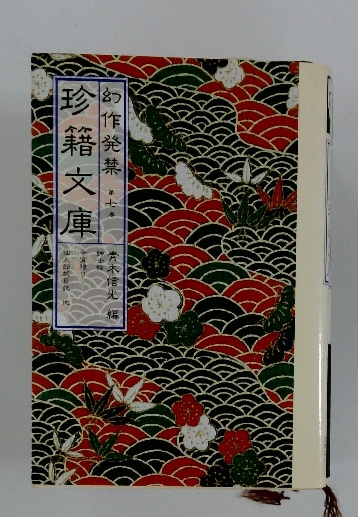 幻作発禁 第七巻
珍籍文庫
青木信光 編